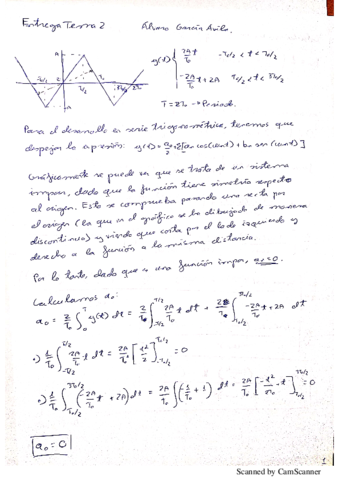 Entrega Tema 2 Álvaro García Ávila
A
y(t) { 2At/T₀ -T₀/2 < t < T₀/2
-2At/T₀ + 2A T₀/2 < t < 3T₀/2
T = 2T₀ → Periodo
Para el desarrollo en serie trigonométrica, tenemos que
despejar la expresión: y(t) = a₀/2 + Σ[an cos(nωt) + bn sen(nωt)]
Gráficamente se puede ver que se trata de un sistema
impar, dado que la función tiene simetría respecto
al origen. Esto se comprueba pasando una recta por
el origen (la que en el gráfico se ha dibujado de manera
discontinua) y viendo que corta por el lado izquierdo y
derecho a la función a la misma distancia.
Por lo tanto, dado que es una función impar, a₀ = 0.
Calculamos a₀:
a₀ = 2/T₀ ∫ y(t) dt = 2/T₀ ∫ 2A/T₀ t dt + 2/T₀ ∫ -2A/T₀ t + 2A dt
•) 1/T₀ ∫ 2A/T₀ t dt = 2A/T₀ [t²/2] = 0
•) 1/T₀ ∫ (-2A/T₀ t + 2A) dt = 2A/T₀ ∫ (-t/T₀ + 1) dt = 2A/T₀ [-t²/2T₀ + t] = 0
a₀ = 0
1
Scanned by CamScanner